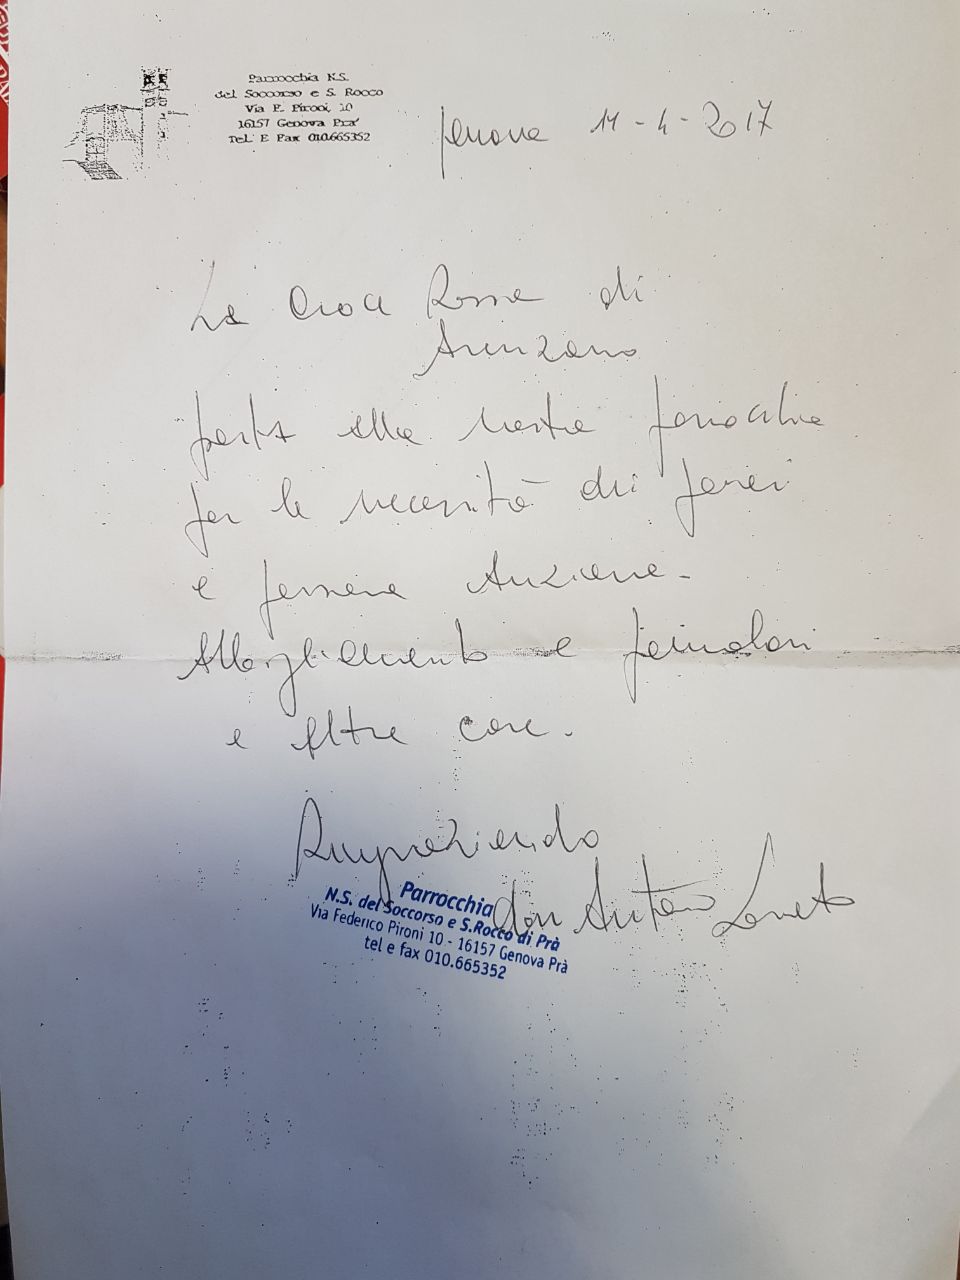 Parrocchia N.S.
del Soccorso e S. Rocco
Via F. Pironi, 10
16157 Genova Pra'
Tel. E Fax 010.665352
Genova 11-4-2017
La Croce Rossa di
Arenzano
porta alla nostra parrocchia
per le necessità dei poveri
e persone Anziane.
Abbigliamento e
e altre cose.
Ringraziando
don
Parrocchia
N.S. del Soccorso e S.Rocco di Prà
Via Federico Pironi 10 - 16157 Genova Prà
tel e fax 010.665352